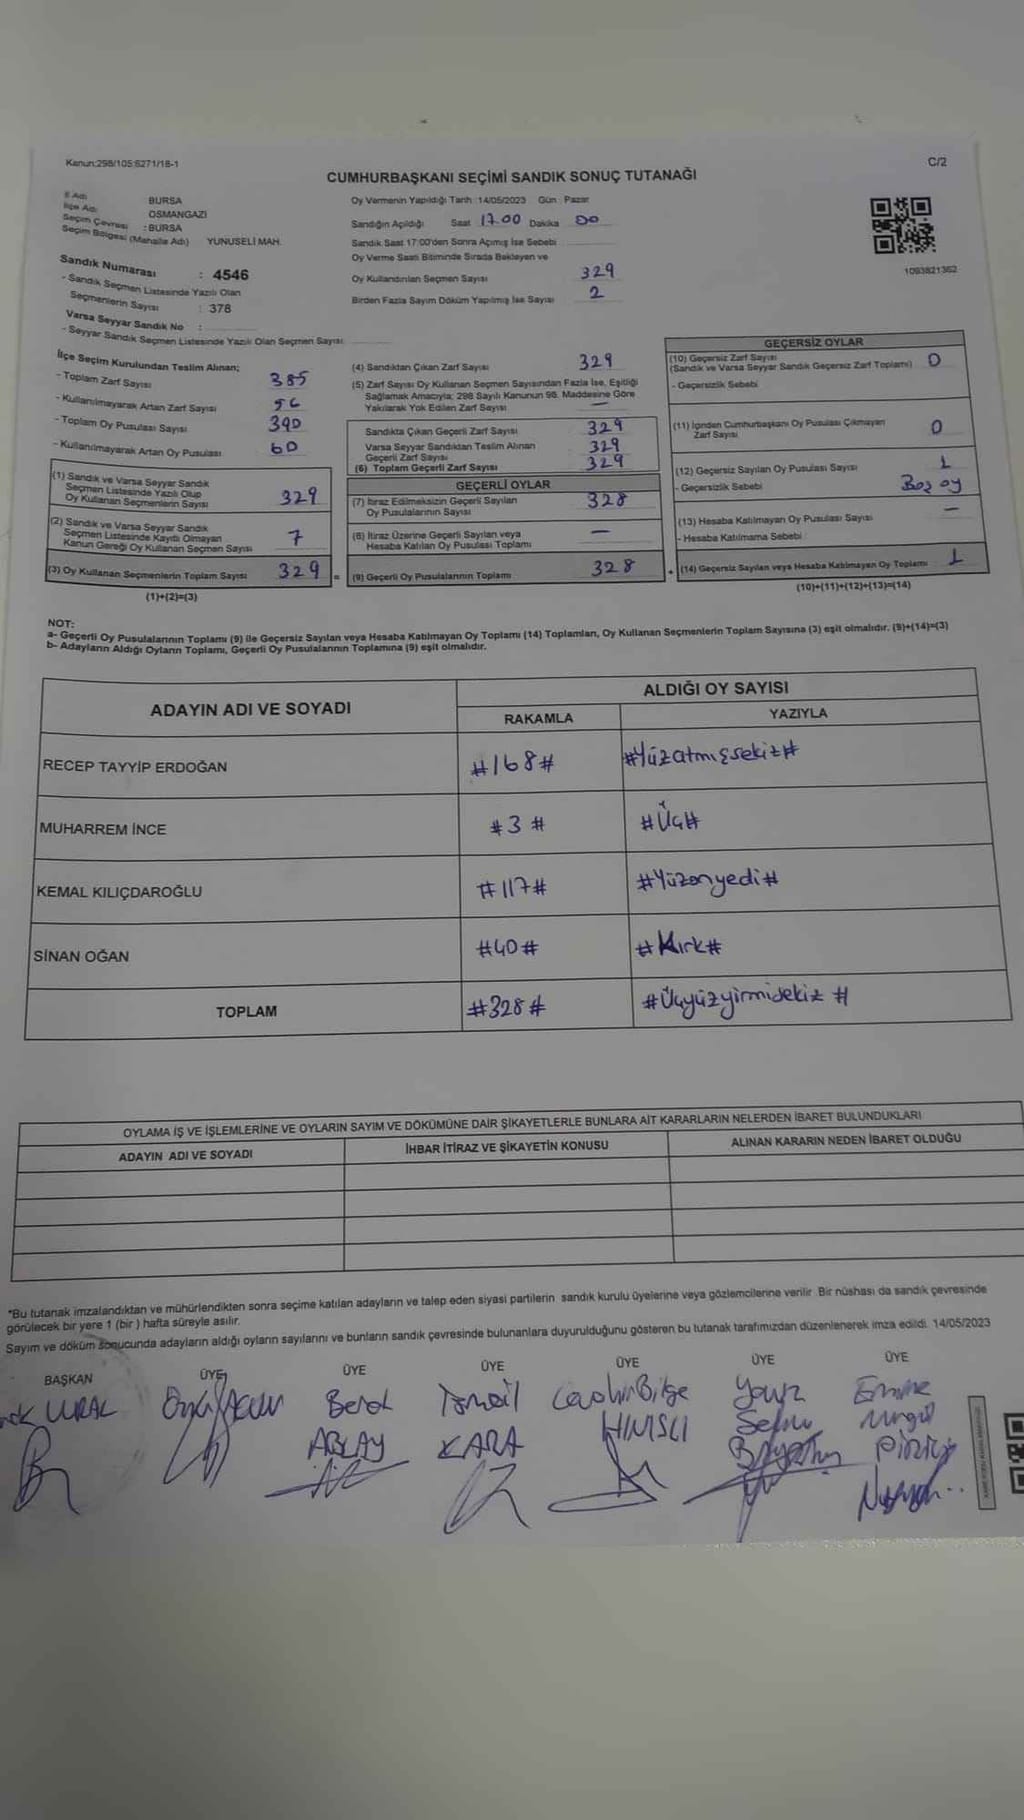 Kanun:298/105;6271/18-1
C/2
CUMHURBAŞKANI SEÇİMİ SANDIK SONUÇ TUTANAĞI
İl Adı BURSA
İlçe Adı: OSMANGAZİ
Seçim Çevresi : BURSA
Seçim Bölgesi (Mahalle Adı) YUNUSELİ MAH.
Sandık Numarası : 4546
- Sandık Seçmen Listesinde Yazılı Olan
Seçmenlerin Sayısı : 378
Varsa Seyyar Sandık No :
- Seyyar Sandık Seçmen Listesinde Yazılı Olan Seçmen Sayısı:
Oy Vermenin Yapıldığı Tarih :14/05/2023 Gün : Pazar
Sandığın Açıldığı Saat 17.00 Dakika 00
Sandık Saat 17:00'den Sonra Açımış İse Sebebi
Oy Verme Saati Bitiminde Sırada Bekleyen ve
Oy Kullandırılan Seçmen Sayısı 329
Birden Fazla Sayım Döküm Yapılmış İse Sayısı 2
1093821362
İlçe Seçim Kurulundan Teslim Alınan;
- Toplam Zarf Sayısı 385
- Kullanılmayarak Artan Zarf Sayısı 56
- Toplam Oy Pusulası Sayısı 390
- Kullanılmayarak Artan Oy Pusulası 60
(1) Sandık ve Varsa Seyyar Sandık
Seçmen Listesinde Yazılı Olup
Oy Kullanan Seçmenlerin Sayısı 329
(2) Sandık ve Varsa Seyyar Sandık
Seçmen Listesinde Kayıtlı Olmayan
Kanun Gereği Oy Kullanan Seçmen Sayısı 7
(3) Oy Kullanan Seçmenlerin Toplam Sayısı 329 =
(1)+(2)=(3)
(4) Sandıktan Çıkan Zarf Sayısı 329
(5) Zarf Sayısı Oy Kullanan Seçmen Sayısından Fazla İse, Eşitliği
Sağlamak Amacıyla; 298 Sayılı Kanunun 98. Maddesine Göre
Yakılarak Yok Edilen Zarf Sayısı —
Sandıkta Çıkan Geçerli Zarf Sayısı 329
Varsa Seyyar Sandıktan Teslim Alınan
Geçerli Zarf Sayısı 329
(6) Toplam Geçerli Zarf Sayısı 329
GEÇERLİ OYLAR
(7) İtiraz Edilmeksizin Geçerli Sayılan
Oy Pusulalarının Sayısı 328
(8) İtiraz Üzerine Geçerli Sayılan veya
Hesaba Katılan Oy Pusulası Toplamı —
(9) Geçerli Oy Pusulalarının Toplamı 328 +
GEÇERSİZ OYLAR
(10) Geçersiz Zarf Sayısı
(Sandık ve Varsa Seyyar Sandık Geçersiz Zarf Toplamı) 0
- Geçersizlik Sebebi
(11) İçinden Cumhurbaşkanı Oy Pusulası Çıkmayan
Zarf Sayısı 0
(12) Geçersiz Sayılan Oy Pusulası Sayısı 1
- Geçersizlik Sebebi Boş oy
(13) Hesaba Katılmayan Oy Pusulası Sayısı —
- Hesaba Katılmama Sebebi
(14) Geçersiz Sayılan veya Hesaba Katılmayan Oy Toplamı 1
(10)+(11)+(12)+(13)=(14)
NOT:
a- Geçerli Oy Pusulalarının Toplamı (9) ile Geçersiz Sayılan veya Hesaba Katılmayan Oy Toplamı (14) Toplamları, Oy Kullanan Seçmenlerin Toplam Sayısına (3) eşit olmalıdır. (9)+(14)=(3)
b- Adayların Aldığı Oyların Toplamı, Geçerli Oy Pusulalarının Toplamına (9) eşit olmalıdır.
ADAYIN ADI VE SOYADI
ALDIĞI OY SAYISI
RAKAMLA YAZIYLA
RECEP TAYYİP ERDOĞAN #168# #Yüzatmışsekiz#
MUHARREM İNCE #3# #Üç#
KEMAL KILIÇDAROĞLU #117# #Yüzonyedi#
SİNAN OĞAN #40# #Kırk#
TOPLAM #328# #Üçyüzyirmisekiz#
OYLAMA İŞ VE İŞLEMLERİNE VE OYLARIN SAYIM VE DÖKÜMÜNE DAİR ŞİKAYETLERLE BUNLARA AİT KARARLARIN NELERDEN İBARET BULUNDUKLARI
ADAYIN ADI VE SOYADI İHBAR İTİRAZ VE ŞİKAYETİN KONUSU ALINAN KARARIN NEDEN İBARET OLDUĞU
*Bu tutanak imzalandıktan ve mühürlendikten sonra seçime katılan adayların ve talep eden siyasi partilerin sandık kurulu üyelerine veya gözlemcilerine verilir. Bir nüshası da sandık çevresinde
görülecek bir yere 1 (bir ) hafta süreyle asılır.
Sayım ve döküm sonucunda adayların aldığı oyların sayılarını ve bunların sandık çevresinde bulunanlara duyurulduğunu gösteren bu tutanak tarafımızdan düzenlenerek imza edildi. 14/05/2023
BAŞKAN ÜYE ÜYE ÜYE ÜYE ÜYE ÜYE
URAL Berat İsmail Bilge Yavuz Emine
ABLAY KARA HINISLI Selim